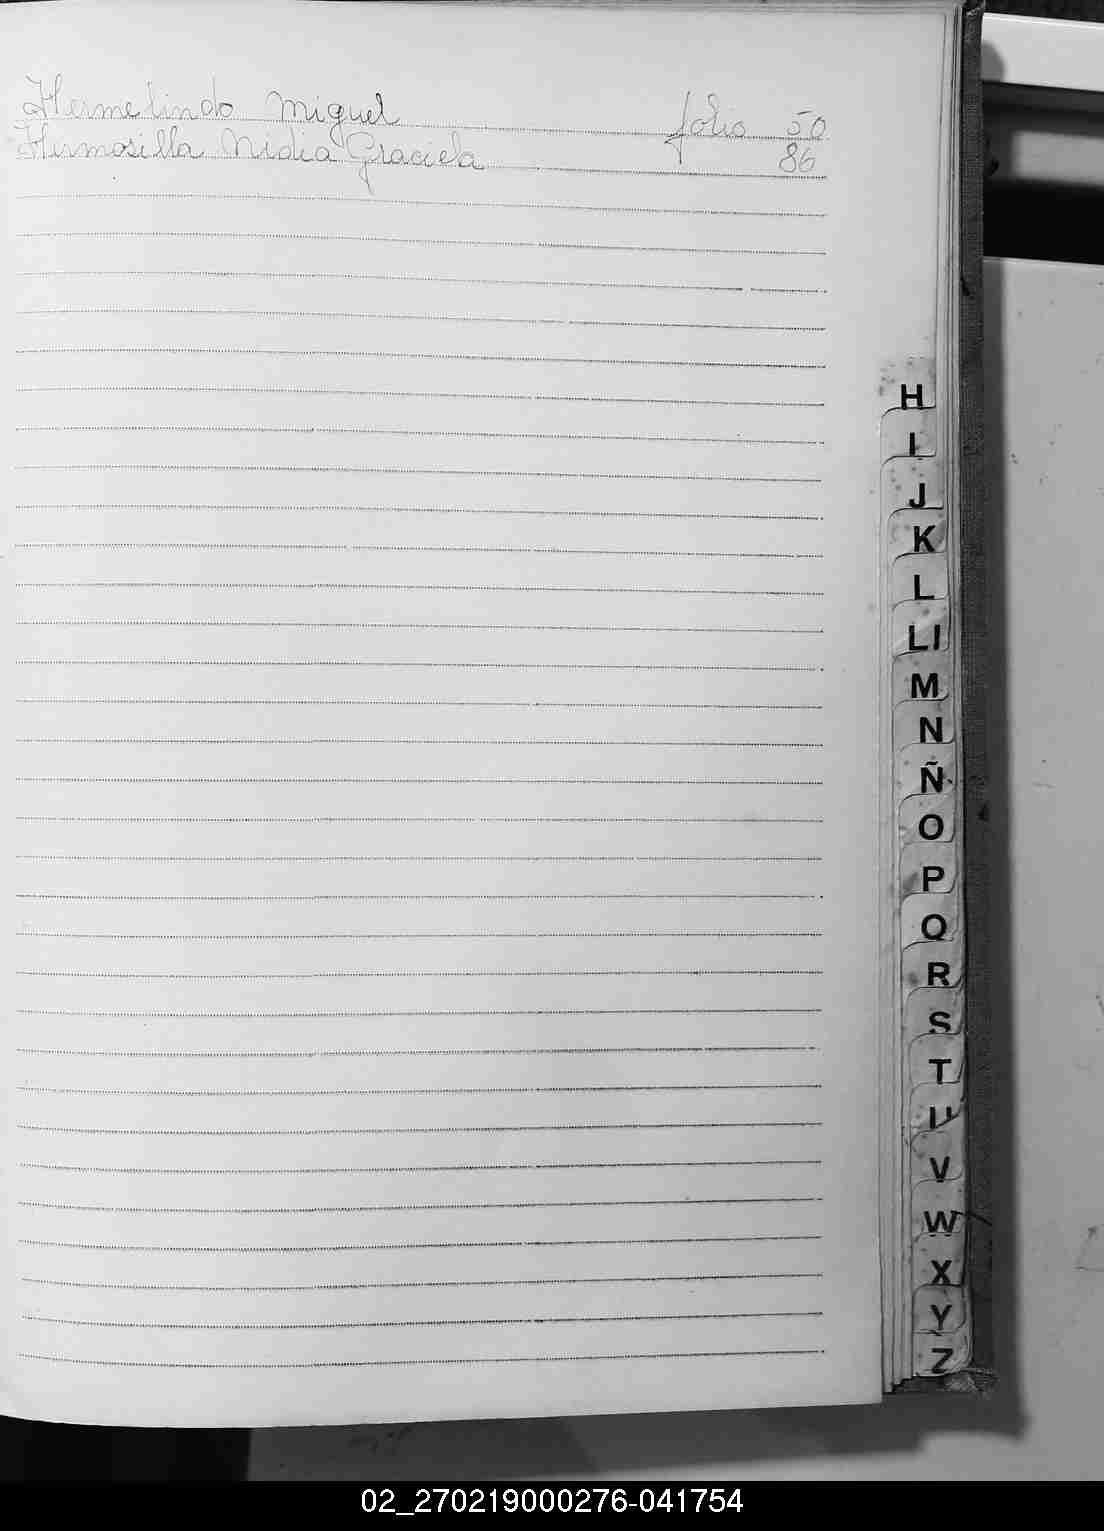 Hermelindo Miguel folio 50
Hermosilla Nidia Graciela 86
H
I
J
K
L
Ll
M
N
Ñ
O
P
Q
R
S
T
U
V
W
X
Y
Z
02_270219000276-041754